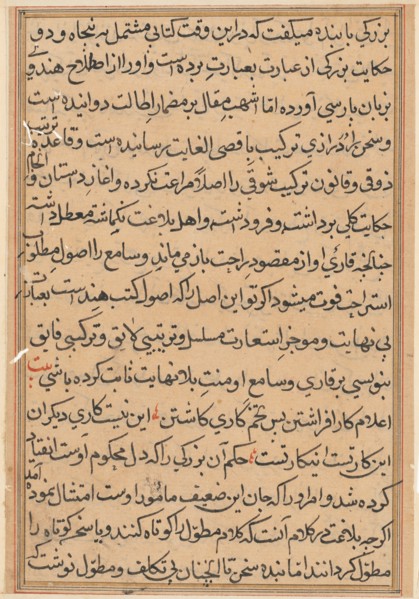 بزرکی با بنده میکفت که دراین وقت کتابی مشتمل به پنجاه و دو
حکایت بزرکی از عبارت بعبارت برده است و اورا از اطلاح هندوی
بزبان پارسی آورده امّا اشهب مقال بر مضمار اطالت دوانیده ست
و سخن را درازی ترکیب باقصی الغایت رسانیده ست و قاعدهٔ ترتیب
ذوقی و قانون ترکیب شوقی را اصلا مراعت نکرده و اغاز دستان و انجام
حکایت کلی برداشته و فرود اشته و اهل بلاغت معطل داشته
چنانچه قاری از مقصود راحت باز می ماند و سامع را اصول مطلوب
استراحت فوت میشود اکر تو این اصل را که اصول کتب هندست بعبارت
بی نهایت و موجز استعارت مسلسل و ترتیبی لائق و ترکیبی فایق
بنویسی بر قاری و سامع او منت بلا نهایت ثابت کرده باشی بیت
اعلام کار افراشتن بس تخم کاری کاشتن این نیست کاری دیکران
این کار تست این کار تست حکم آن بزرکی را که دل محکوم اوست انقیاد
کرده شد و امر او را که جان این ضعیف مامور اوست امتثال نموده آمد
اکرچه بلاغت در کلام آنست که کلام مطول را کوتاه کنند و یا سخن کوتاه را
مطول کردانند اما بنده سخن بی تکلف و مطول نوشت که